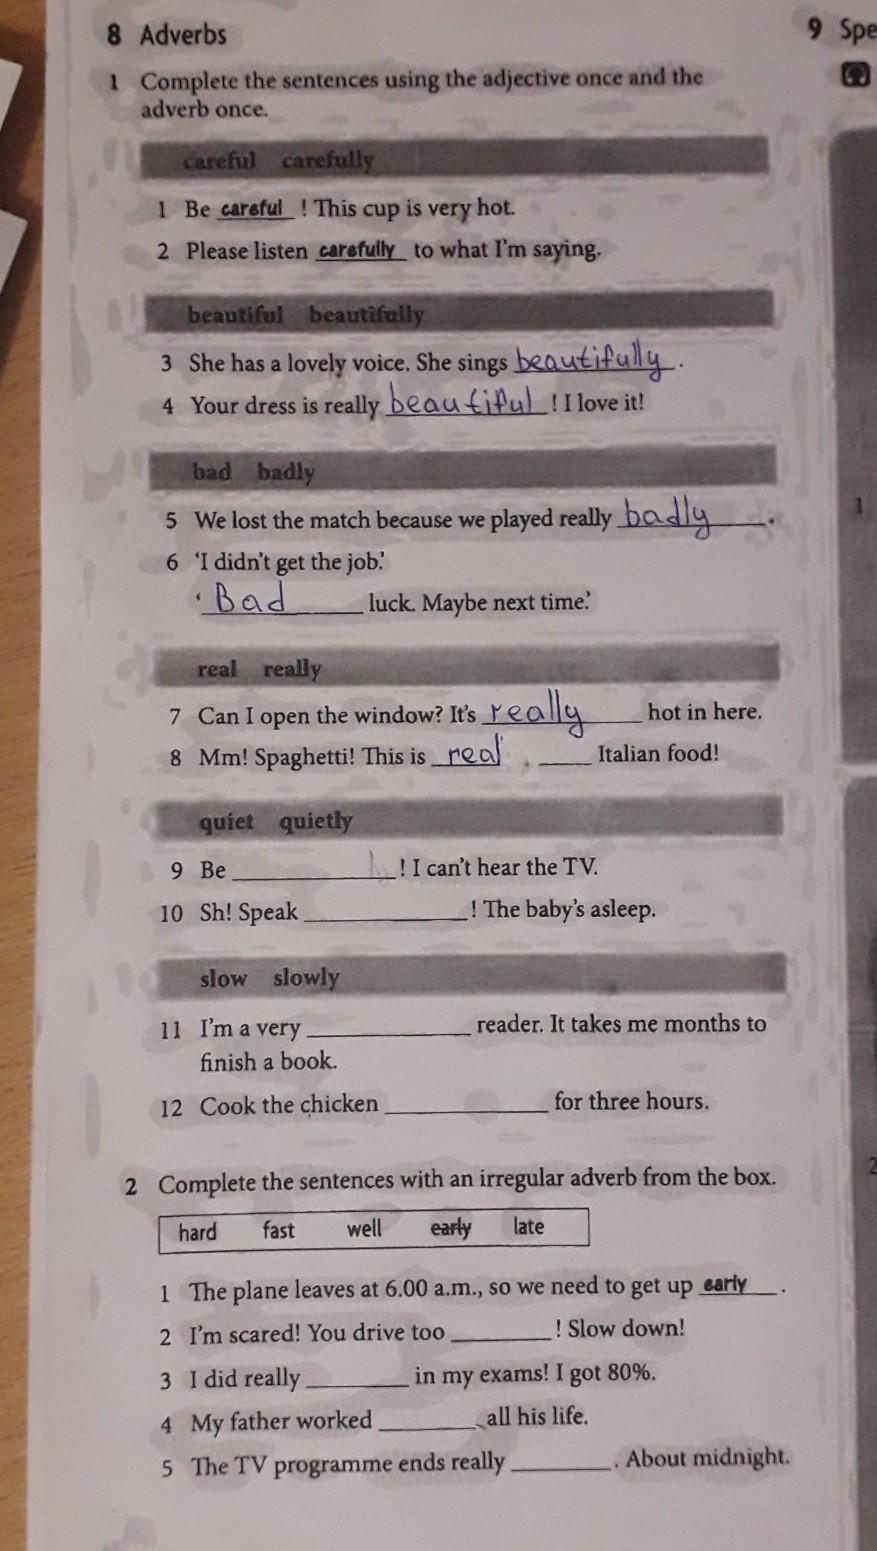 8 Adverbs
9 Spe
1 Complete the sentences using the adjective once and the
adverb once.
careful carefully
1 Be careful ! This cup is very hot.
2 Please listen carefully to what I'm saying.
beautiful beautifully
3 She has a lovely voice. She sings beautifully.
4 Your dress is really beautiful! I love it!
bad badly
5 We lost the match because we played really badly.
1
6 'I didn't get the job.'
'Bad luck. Maybe next time.'
real really
7 Can I open the window? It's really hot in here.
8 Mm! Spaghetti! This is real ____ Italian food!
quiet quietly
9 Be ____________! I can't hear the TV.
10 Sh! Speak ____________! The baby's asleep.
slow slowly
11 I'm a very ____________ reader. It takes me months to
finish a book.
12 Cook the chicken ____________ for three hours.
2 Complete the sentences with an irregular adverb from the box.
2
hard fast well early late
1 The plane leaves at 6.00 a.m., so we need to get up early.
2 I'm scared! You drive too ________! Slow down!
3 I did really ________ in my exams! I got 80%.
4 My father worked ________ all his life.
5 The TV programme ends really ________. About midnight.